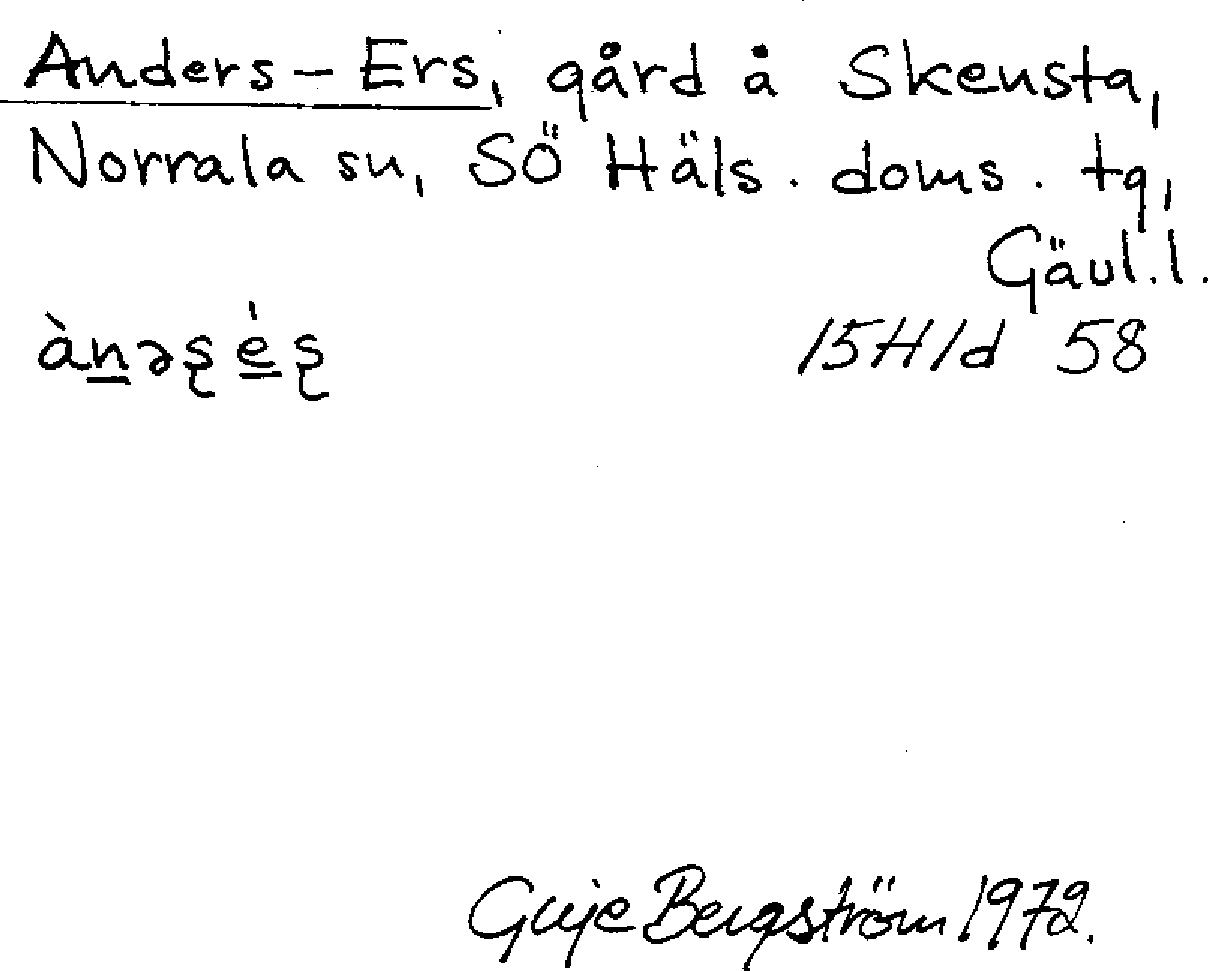 Anders-Ers, gård å Skensta,
Norrala sn, SÖ Häls. doms. tg,
Gävl.l.
ànəʂéʂ 15H1d 58
Bergström 1972.